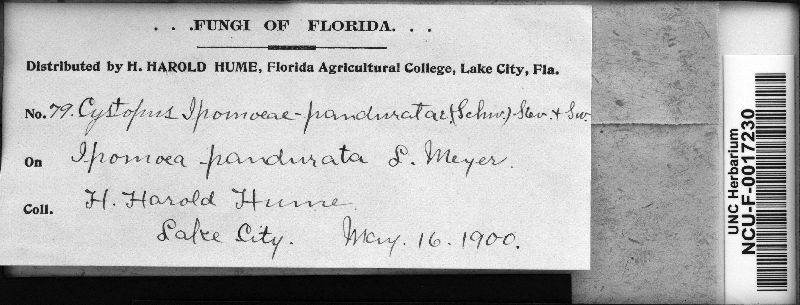 . . .FUNGI OF FLORIDA. . .
Distributed by H. HAROLD HUME, Florida Agricultural College, Lake City, Fla.
No. 79. Cystopus Ipomoeae-panduratae, (Schw.) Stev. & Sw.
On Ipomoea pandurata L. Meyer.
Coll. H. Harold Hume
Lake City. May. 16. 1900.
UNC Herbarium
NCU-F-0017230